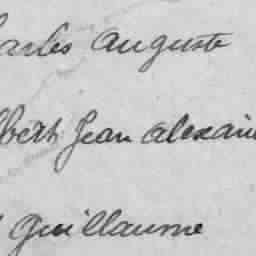 arles Auguste
lbert Jean Alexan
Guillaume